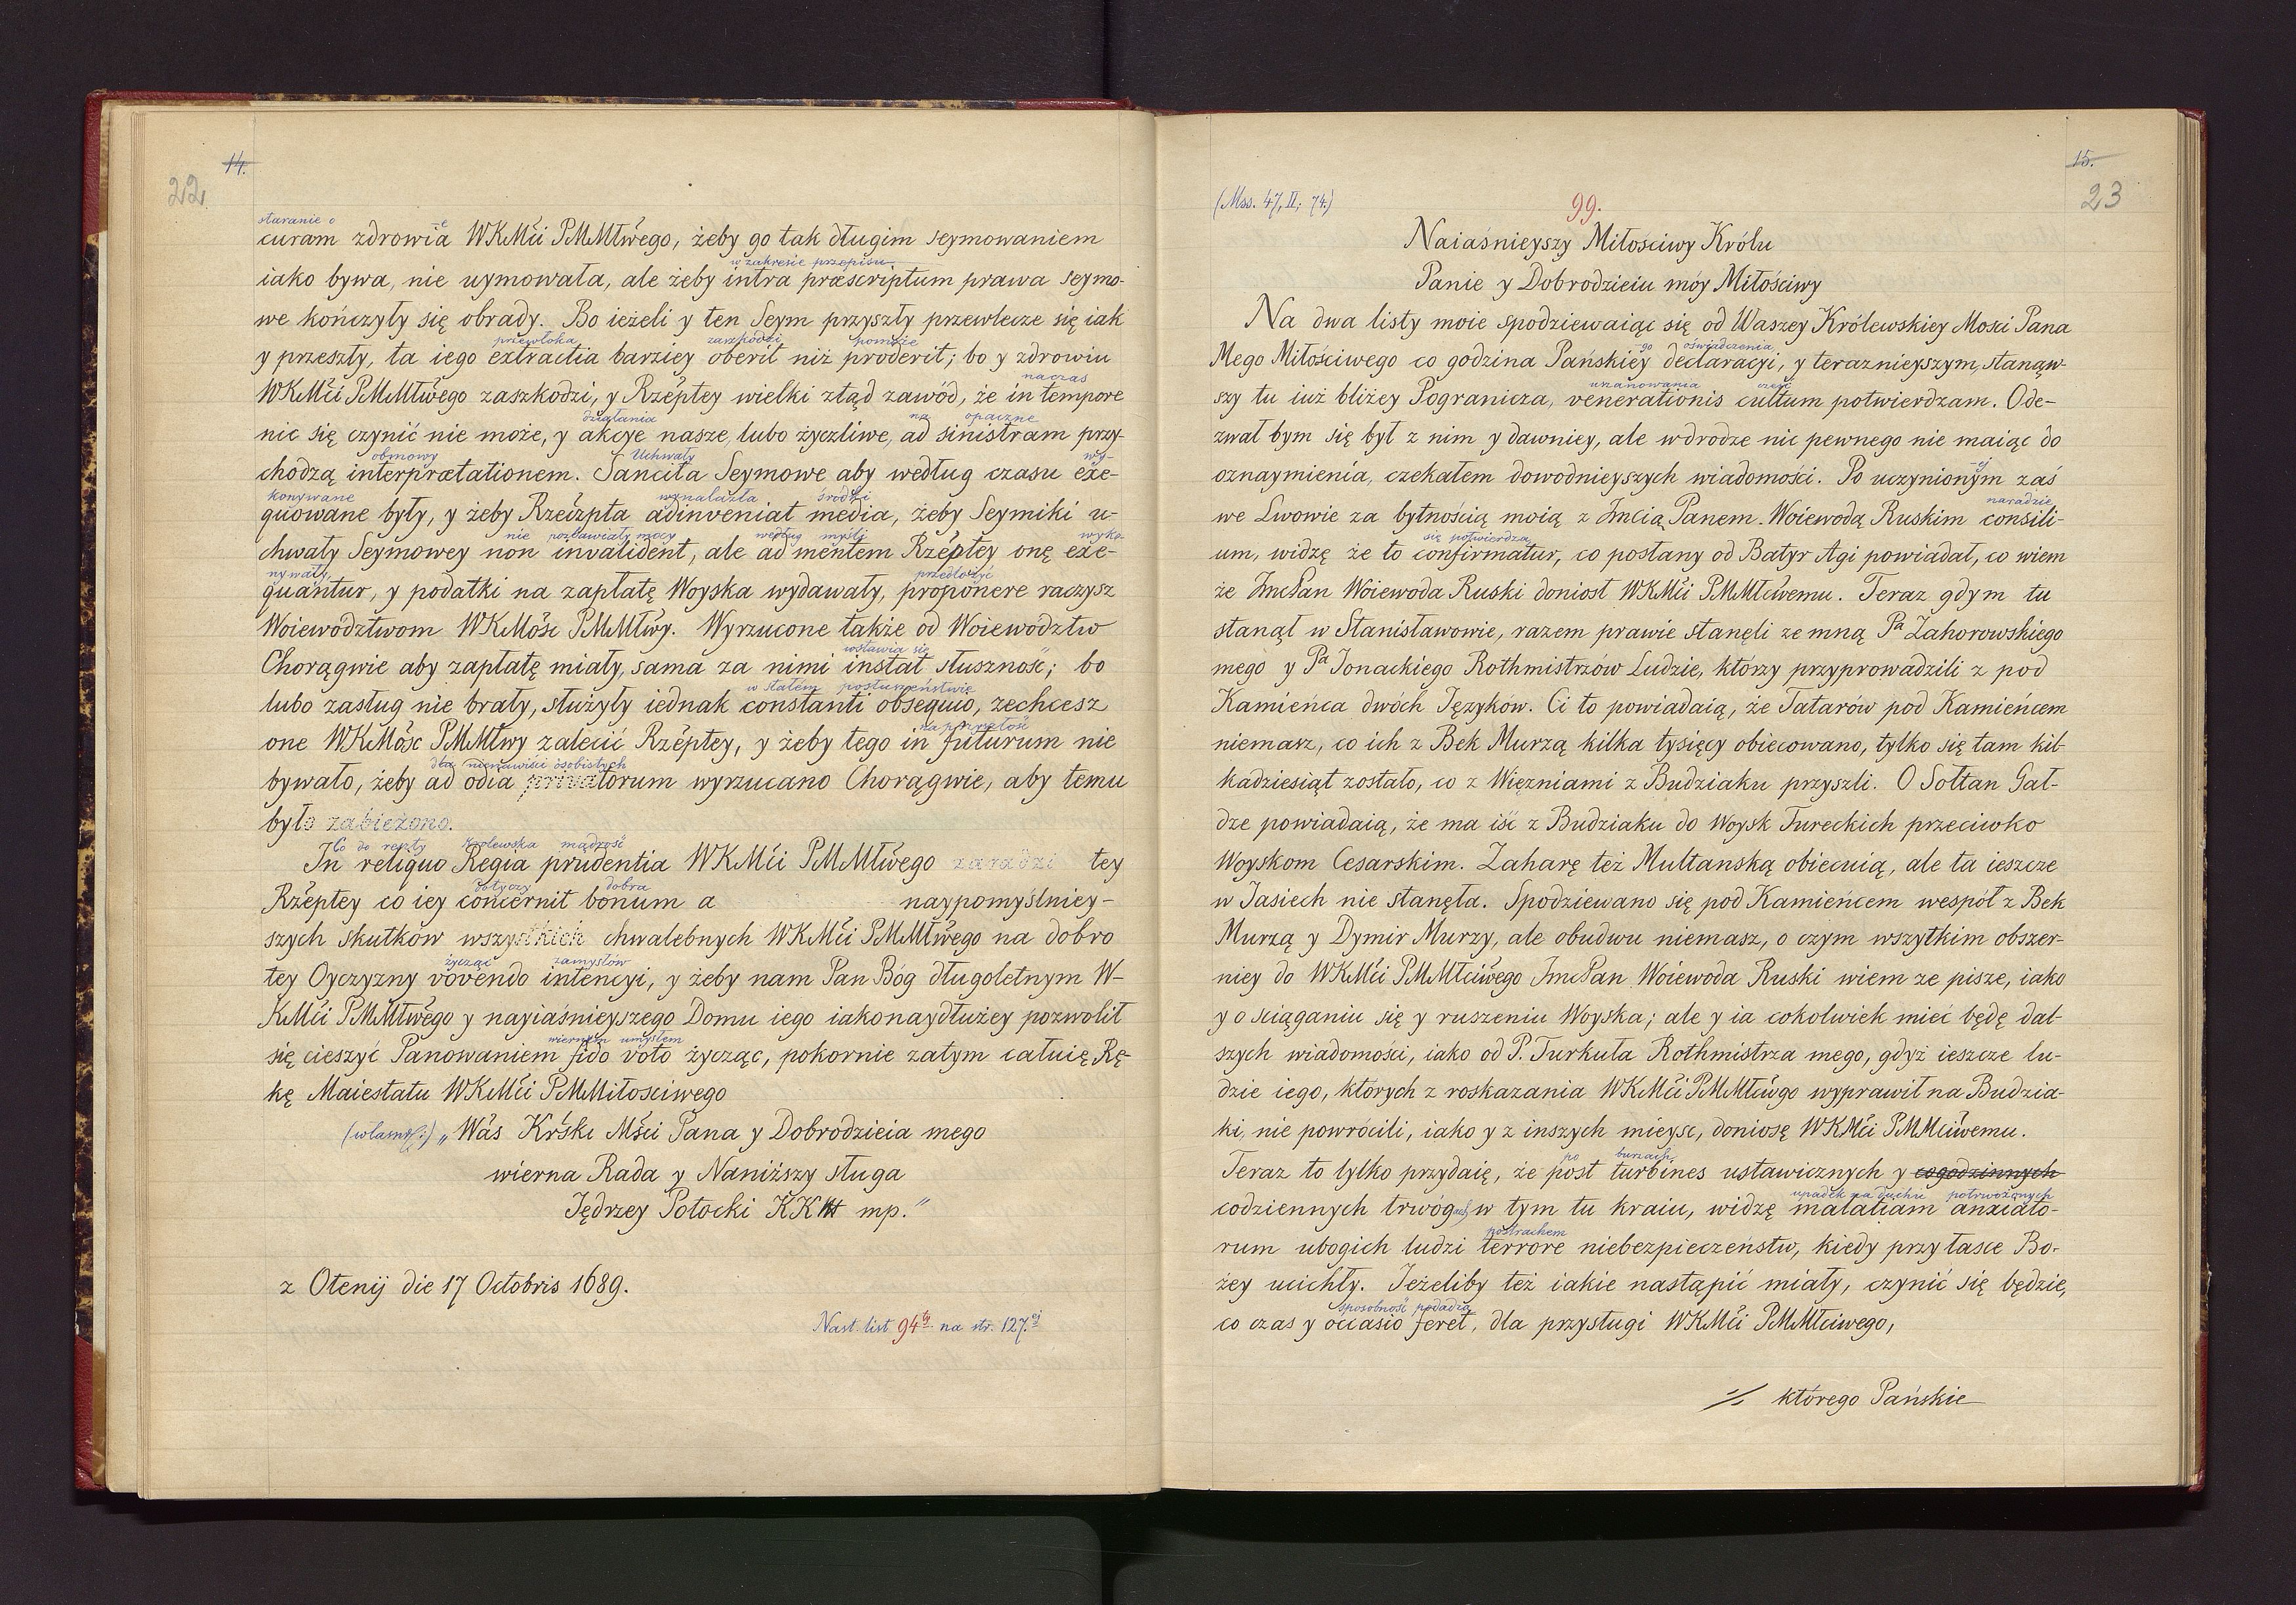 14.
22
staranie o -e
curam zdrowia WKMći PMMłwego, żeby go tak długim seymowaniem
w zakresie przepisu
iako bywa, nie uymowała, ale żeby intra præscriptum prawa seymo-
we kończyły się obrady. Bo ieżeli y ten Seym przyszły przewlecze się iak
przewłoka zaszkodzi pomoże
y przeszły, ta iego extractia barziey oberit niż proderit; bo y zdrowiu
na czas
WKMći PMMłwego zaszkodzi, y Rzéptey wielki ztąd zawód, że in tempore
działania na opaczne
nic się czynić nie może, y akcye nasze, lubo życzliwe, ad sinistram przy-
obmowy Uchwały wy-
chodzą interprætationem. Sancita Seymowe aby według czasu exe-
konywane wynalazła środki
quowane były, y żeby Rzeczpta adinveniat media, żeby Seymiki u-
nie pozbawiały mocy według myśli wyko-
chwały Seymowey non invalident, ale ad mentem Rzéptey onę exe-
nywały, przedłożyć
quantur, y podatki na zapłatę Woyska wydawały, proponere raczysz
Woiewodztwom WKMość PMMłwy. Wyrzucone także od Woiewodztw
wstawia się
Chorągwie aby zapłatę miały, sama za nimi instat słuszność; bo
w stałem posłuszeństwie
lubo zasług nie brały, służyły iednak constanti obsequio, zechcesz
na przyszłość
one WKMość PMMłwy zalecić Rzéptey, y żeby tego in futurum nie
dla nienawiści osobistych
bywało, żeby ad odia privatorum wyrzucano Chorągwie, aby temu
było zabieżono.
Co do reszty królewska mądrość
In reliquo Regia prudentia WKMći PMMłwego zaradzi tey
dotyczy dobra
Rzéptey co iey concernit bonum a naypomyślniey-
szych skutków wszystkich chwalebnych WKMći PMMłwego na dobro
życząc zamysłów
tey Oyczyzny vovendo intencyi, y żeby nam Pan Bóg długoletnym W-
KMći PMMłwego y nayiaśnieyszego Domu iego iakonaydłużey pozwolił
wiernym umysłem
się cieszyć Panowaniem fido voto życząc, pokornie zatym całuię Rę-
kę Maiestatu WKMći PMMiłosciwego
„Wás Kŕski Mści Pana y Dobrodzieia mego
wierna Rada y Naniższy sługa
Jędrzey Potocki KK mp.”
z Otenij die 17 Octobris 1689.
Nast. list 94ty na str. 127.ej
15.
23
(Mss. 47, II; 74.)
99.
Naiaśnieyszy Miłościwy Królu
Panie y Dobrodzieiu móy Miłościwy
Na dwa listy moie spodziewaiąc się od Waszey Królewskiey Mosci Pana
-go oświadczenia
Mego Miłościwego co godzina Pańskiey declaracyi, y teraznieyszym, stanąw-
uszanowania cześć
szy tu iuż bliżey Pogranicza, venerationis cultum potwierdzam. Ode-
zwał bym się był z nim y dawniey, ale w drodze nic pewnego nie maiąc do
-ej
oznaymienia, czekałem dowodnieyszych wiadomości. Po uczynionym zaś
naradzie
we Lwowie za bytnością moią z Jmcią Panem Woiewodą Ruskim consili-
się potwierdza
um, widzę że to confirmatur, co posłany od Batyr Agi powiadał, co wiem
że JmcPan Woiewoda Ruski doniosł WKMći PMMłćwemu. Teraz gdym tu
stanął w Stanisławowie, razem prawie stanęli ze mną Pa Zahorowskiego
mego y Pa Jonackiego Rothmistrzów Ludzie, którzy przyprowadzili z pod
Kamieńca dwóch Języków. Ci to powiadaią, że Tatarów pod Kamieńcem
niemasz, co ich z Bek Murzą kilka tysięcy obiecowano, tylko się tam kil-
kadziesiąt zostało, co z Więzniami z Budziaku przyszli. O Sołtan Gał-
dze powiadaią, że ma iść z Budziaku do Woysk Tureckich przeciwko
Woyskom Cesarskim. Zaharę też Multanską obiecuią, ale ta ieszcze
w Jasiech nie stanęła. Spodziewano się pod Kamieńcem wespół z Bek
Murzą y Dymir Murzy, ale obudwu niemasz, o czym wszytkim obszer-
niey do WKMći PMMłciwego JmcPan Woiewoda Ruski wiem ze pisze, iako
y o sciąganiu się y ruszeniu Woyska; ale y ia cokolwiek mieć będę dal-
szych wiadomości, iako od P. Turkuła Rothmistrza mego, gdyż ieszcze lu-
dzie iego, których z roskazania WKMći PMMłciwgo wyprawił na Budzia-
ki, nie powrócili, iako y z inszych mieysc, doniosę WKMći PMMciwemu.
po burzach
Teraz to tylko przydaię, że post turbines ustawicznych y cogodzinnych
upadek na duchu potrwożonych
codziennych trwógach w tym tu kraiu, widzę malatiam anxiato-
postrachem
rum ubogich ludzi terrore niebezpieczeństw, kiedy przy łasce Bo-
żey ucichły. Jeżeliby też iakie nastąpić miały, czynić się będzie,
sposobność podadzą
co czas y occasio feret, dla przysługi WKMći PMMłciwego,
którego Pańskie